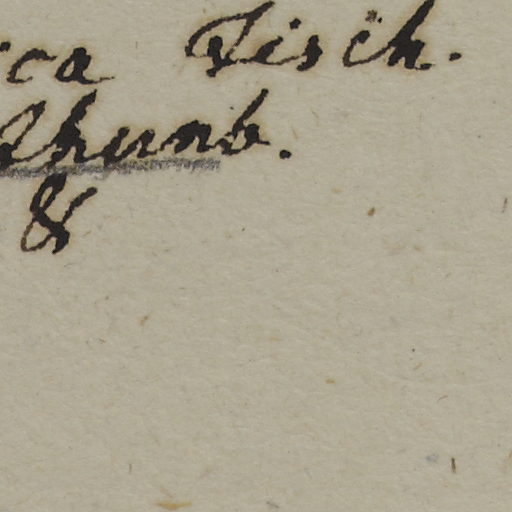 ica Fisch.
Thunb.
&